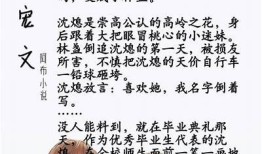 宏文
闻布小说
沈熄是崇高公认的高岭之花，身
后跟着大把眼冒桃心的小迷妹。
林盏倒追沈熄的第一天，被损友
所害，不慎把沈熄的天价自行车
一铅球砸垮。
沈熄放言：喜欢她，我名字倒着
写。
······
没人能料到，就在毕业典礼那
天，作为优秀毕业生代表的沈